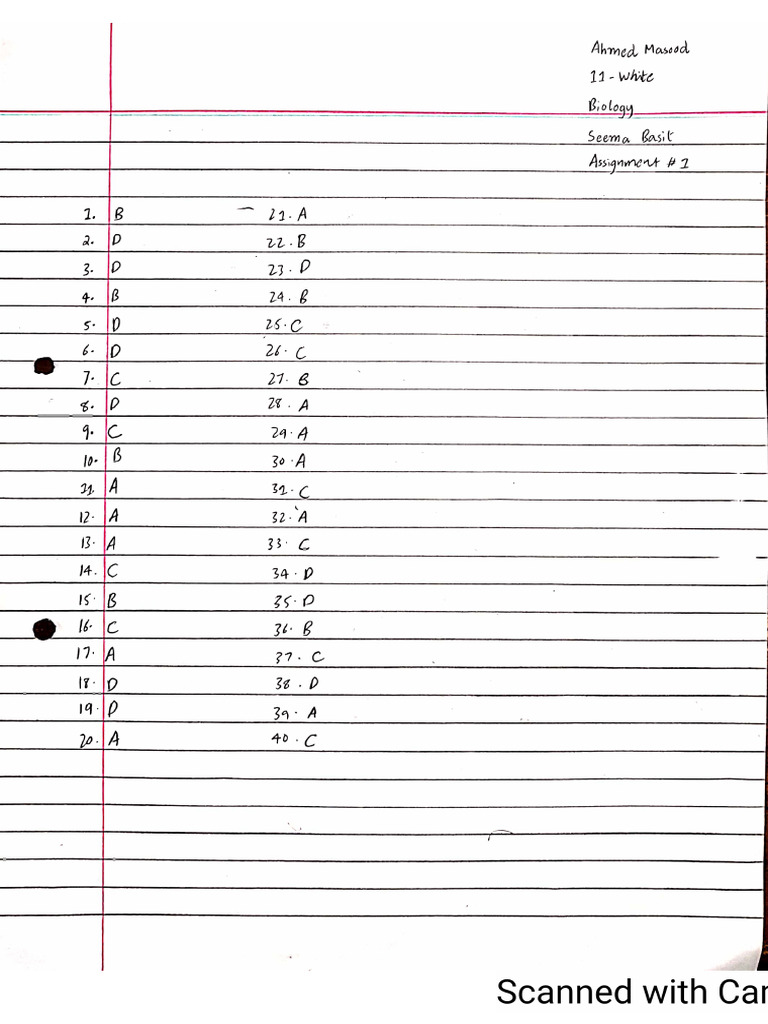 Ahmed Masood
11 - White
Biology
Seema Basit
Assignment # 1
1. B
2. D
3. D
4. B
5. D
6. D
7. C
8. D
9. C
10. B
11. A
12. A
13. A
14. C
15. B
16. C
17. A
18. D
19. D
20. A
21. A
22. B
23. D
24. B
25. C
26. C
27. B
28. A
29. A
30. A
31. C
32. A
33. C
34. D
35. D
36. B
37. C
38. D
39. A
40. C
Scanned with Car